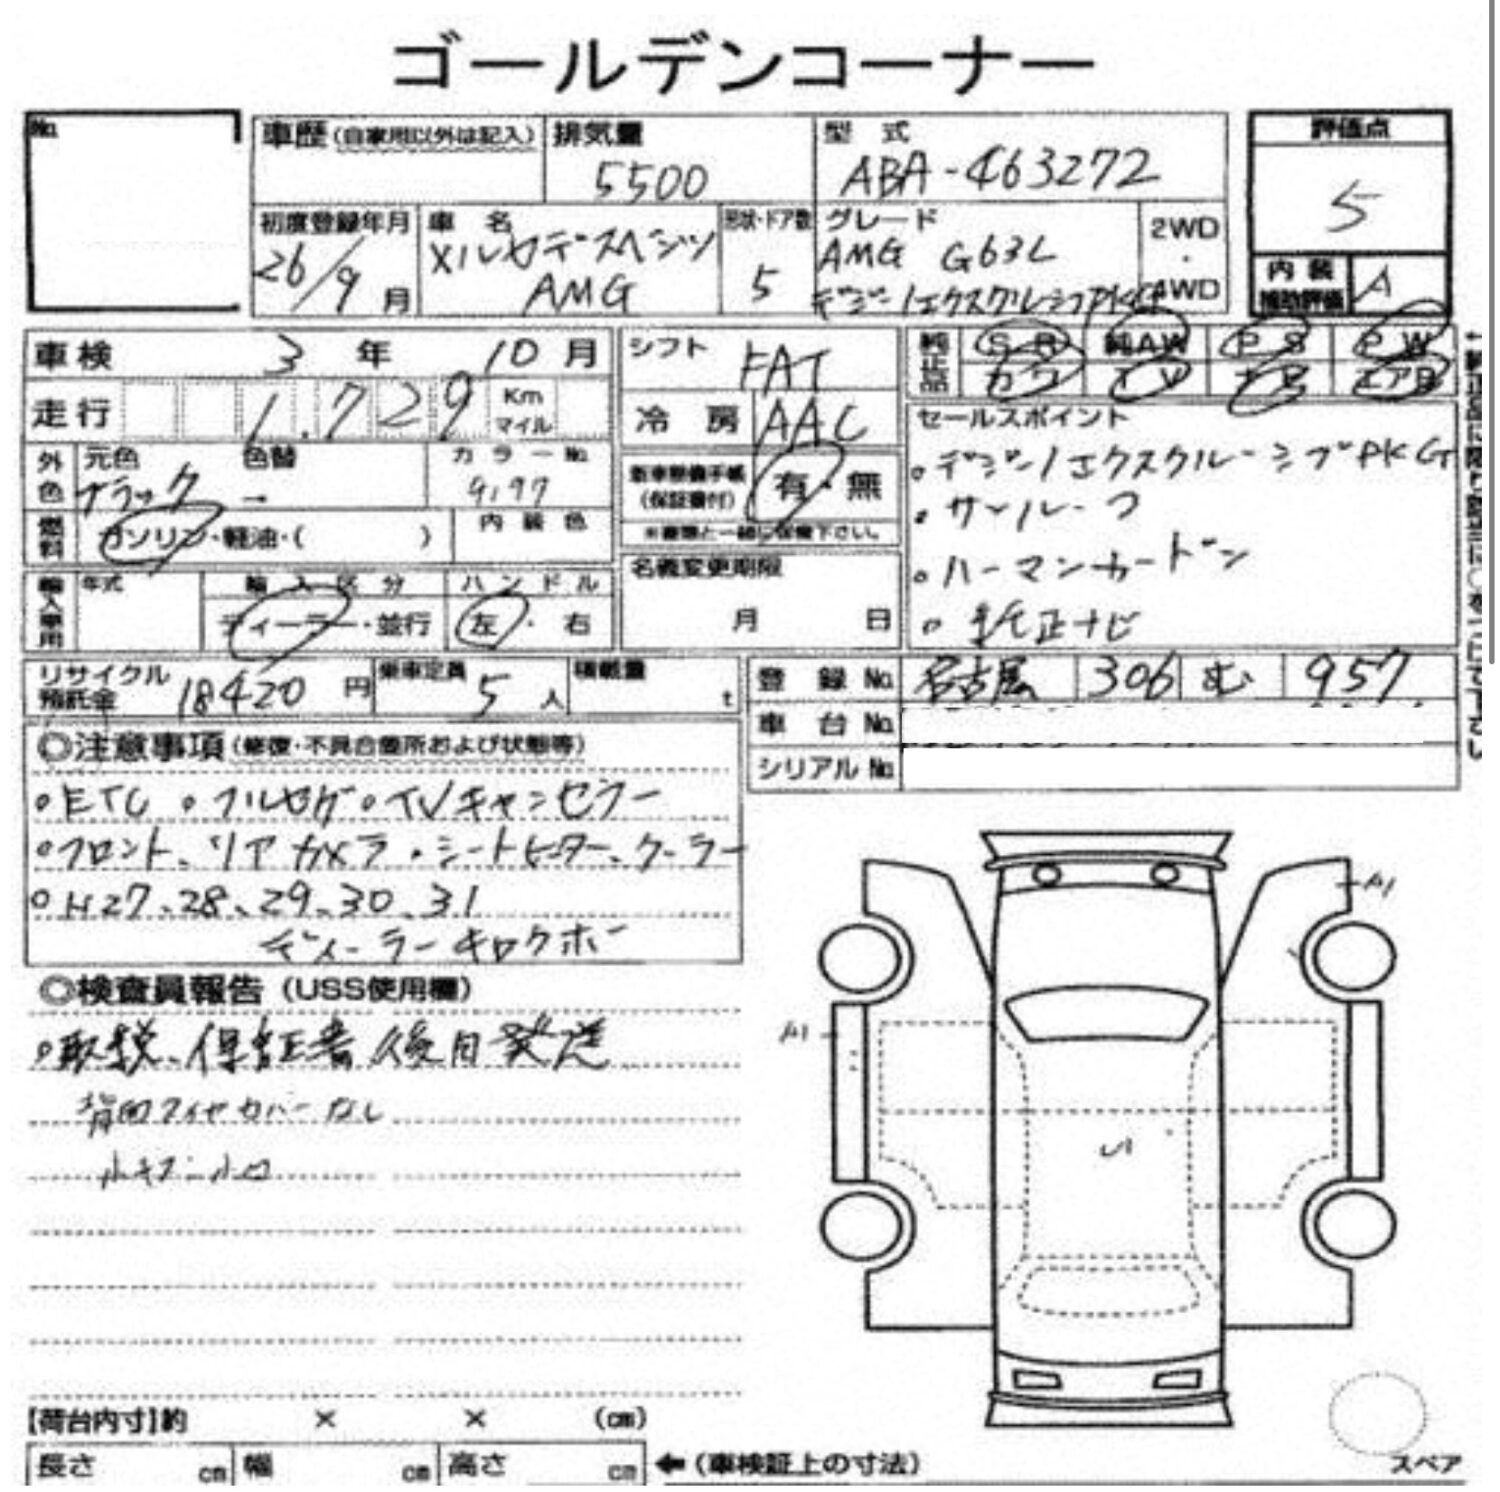 ゴールデンコーナー
No.
車歴(自家用以外は記入)
排気量
5500
型 式
ABA-463272
評価点
5
初度登録年月
26/9月
車 名
メルセデスベンツ
AMG
形状・ドア数
5
グレード
AMG G63L
デジーノエクスクルーシブPKG
2WD
・
4WD
内 装
補助評価
A
車検 3年 10月
シフト
FAT
純正品
SR 純AW PS PW
カワ TV ナビ エアB
走行 1.729 Km マイル
冷 房 AAC
セールスポイント
外色
元色
色替
カラーNo.
ブラック →
9197
新車整備手帳
(保証書付)
有・無
※書類と一緒に保管下さい。
。デジーノエクスクルーシブPKG
。サンルーフ
。ハーマンカードン
。純正ナビ
燃料
ガソリン・軽油・( )
内装色
輸入車用
年式
輸入区分
ハンドル
ディーラー・並行
左・右
名義変更期限
月 日
リサイクル
預託金
18420円
乗車定員
5人
積載量
t
登録No. 名古屋 306 む 957
車台No.
シリアルNo.
◎注意事項(修復・不具合箇所および状態等)
。ETC 。フルセグ 。TVキャンセラー
。フロント、リアカメラ。シートヒーター、クーラー
。H27、28、29、30、31
ディーラーキロクボー
◎検査員報告(USS使用欄)
。取説、保証書後日発送
背面タイヤカバーなし
小キズ・小凹
A1
A1
【荷台内寸】約 × × (cm)
長さ cm 幅 cm 高さ cm ←(車検証上の寸法)
スペア